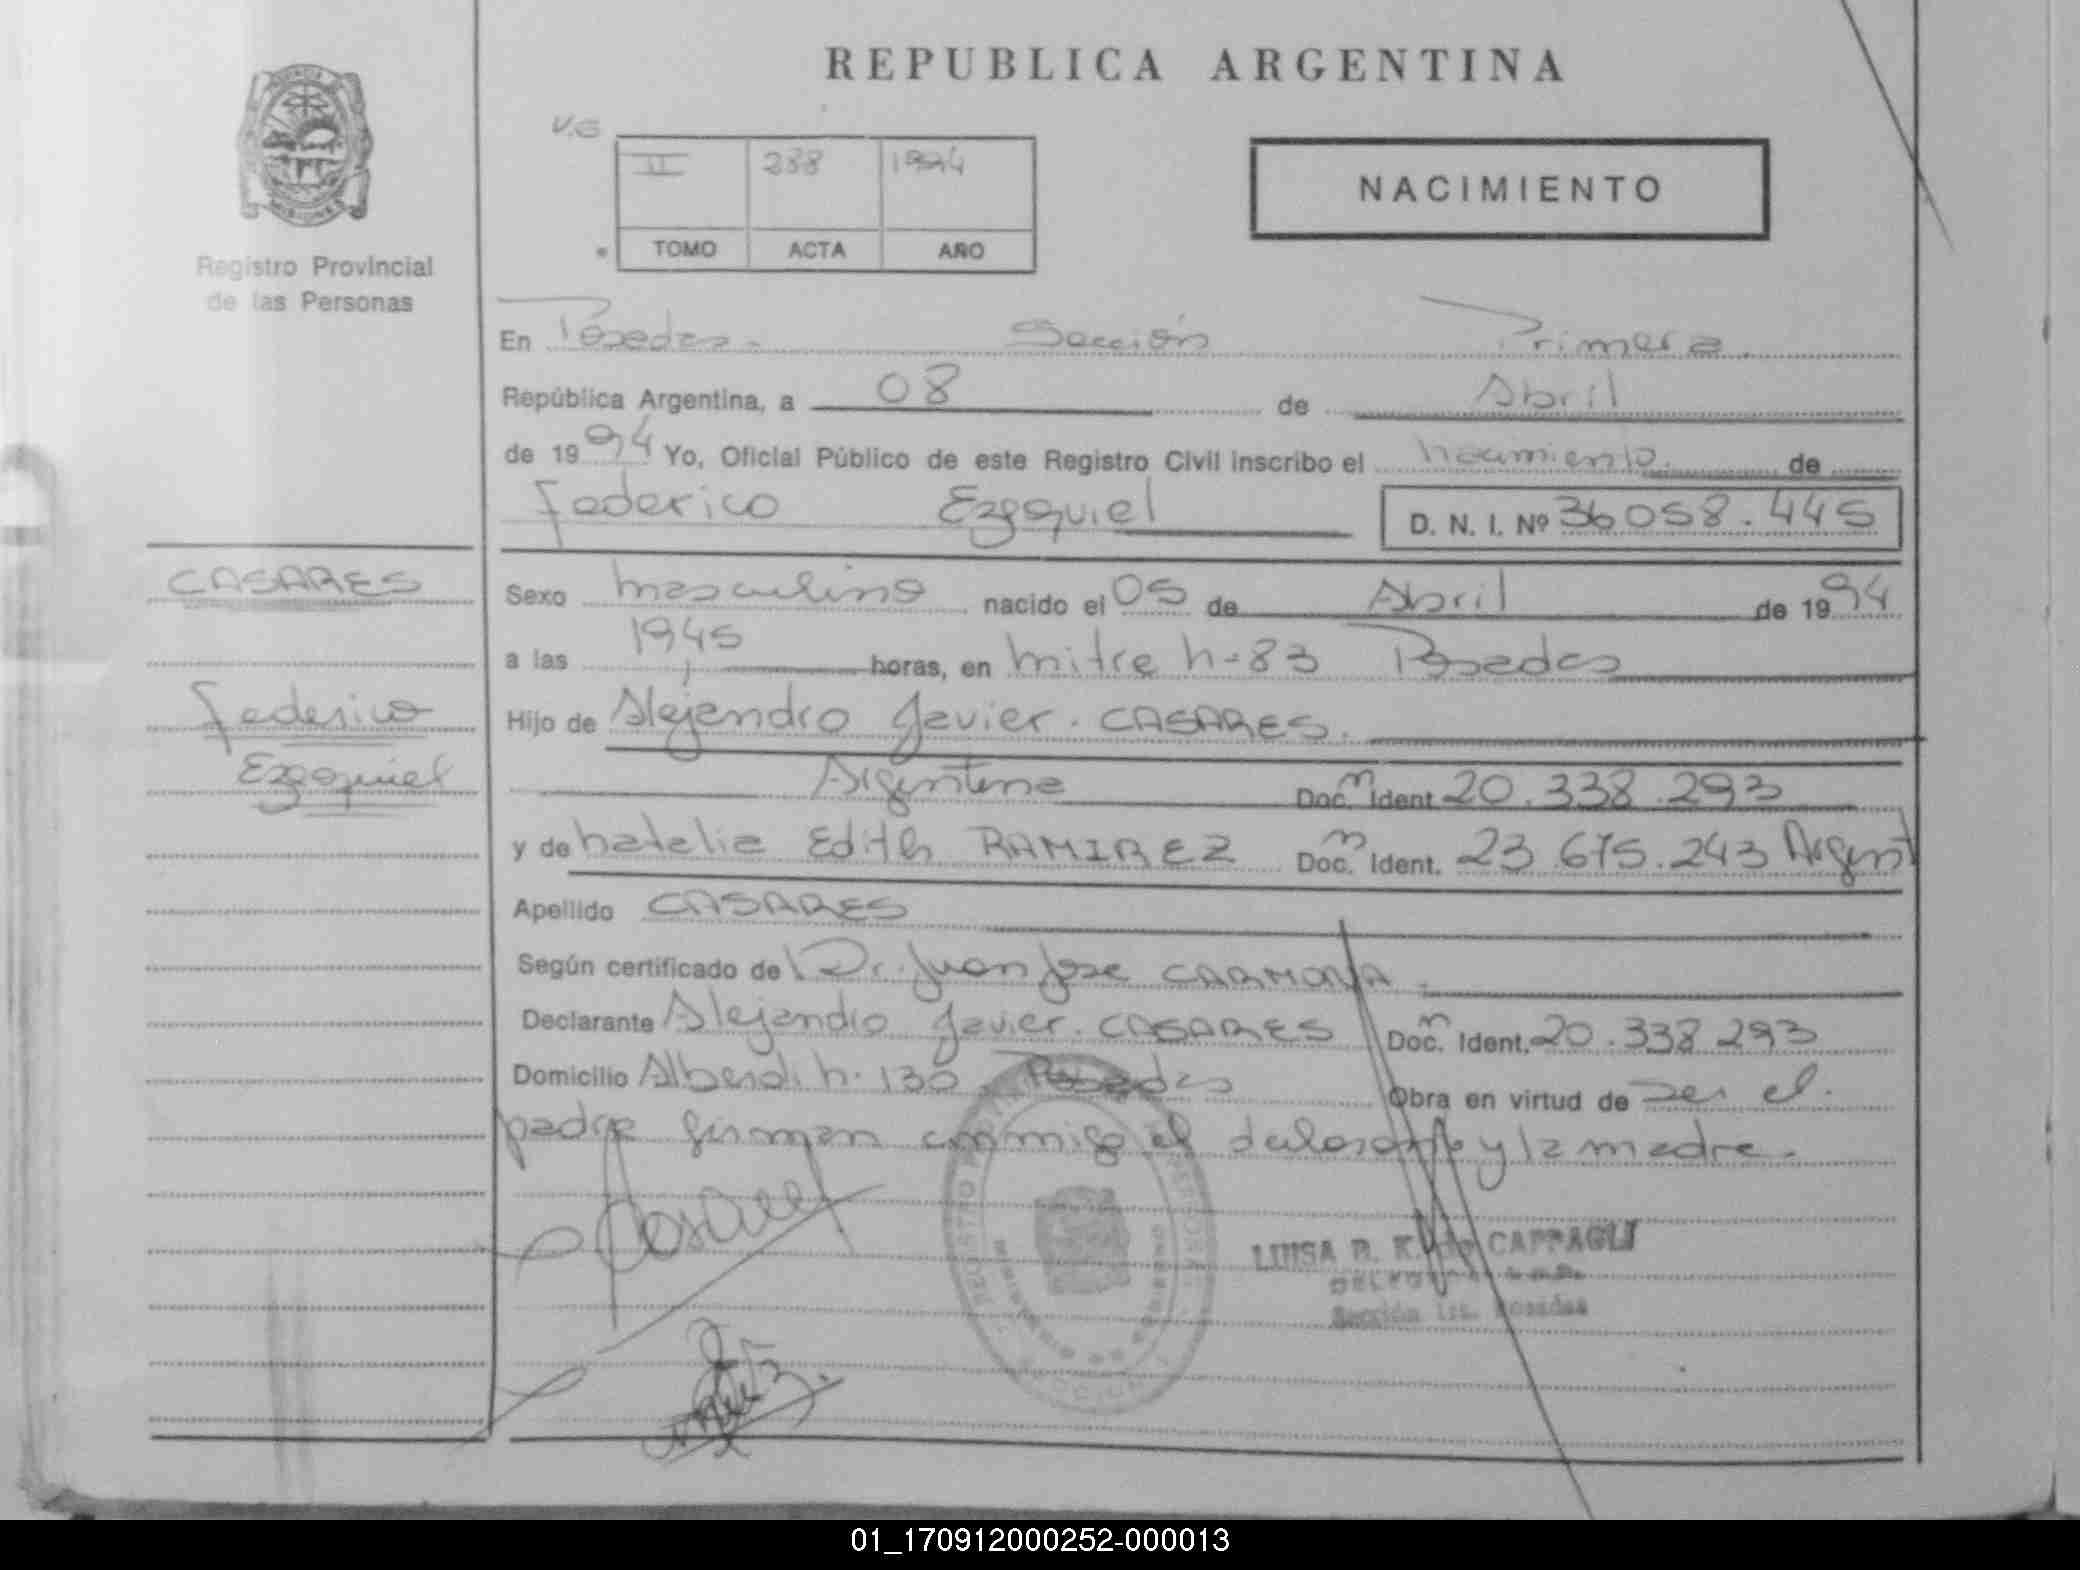 REPUBLICA ARGENTINA
V.G
II 238 1994
TOMO ACTA AÑO
NACIMIENTO
MISIONES
Registro Provincial
de las Personas
En Posadas. Sección Primera
República Argentina, a 08 de Abril
de 1994 Yo, Oficial Público de este Registro Civil inscribo el nacimiento de
Federico Ezequiel D. N. I. Nº 36058.445
CASARES
Federico
Ezequiel
Sexo masculino nacido el 05 de Abril de 1994
a las 1945 horas, en Mitre n-83 Posadas
Hijo de Alejandro Javier. CASARES.
Argentina Doc. n Ident. 20.338.293
y de Natalia Edith RAMIREZ Doc. n Ident. 23.675.243 Argent
Apellido CASARES
Según certificado de Dr. Juan Jose CARMONA.
Declarante Alejandro Javier. CASARES Doc. n Ident. 20.338.293
Domicilio Alberdi n. 130 Posadas Obra en virtud de ser el.
padre firman conmigo el y la madre.
LUISA R. K. de CAPPAGLI
Sección 1ra. Posadas
01_170912000252-000013